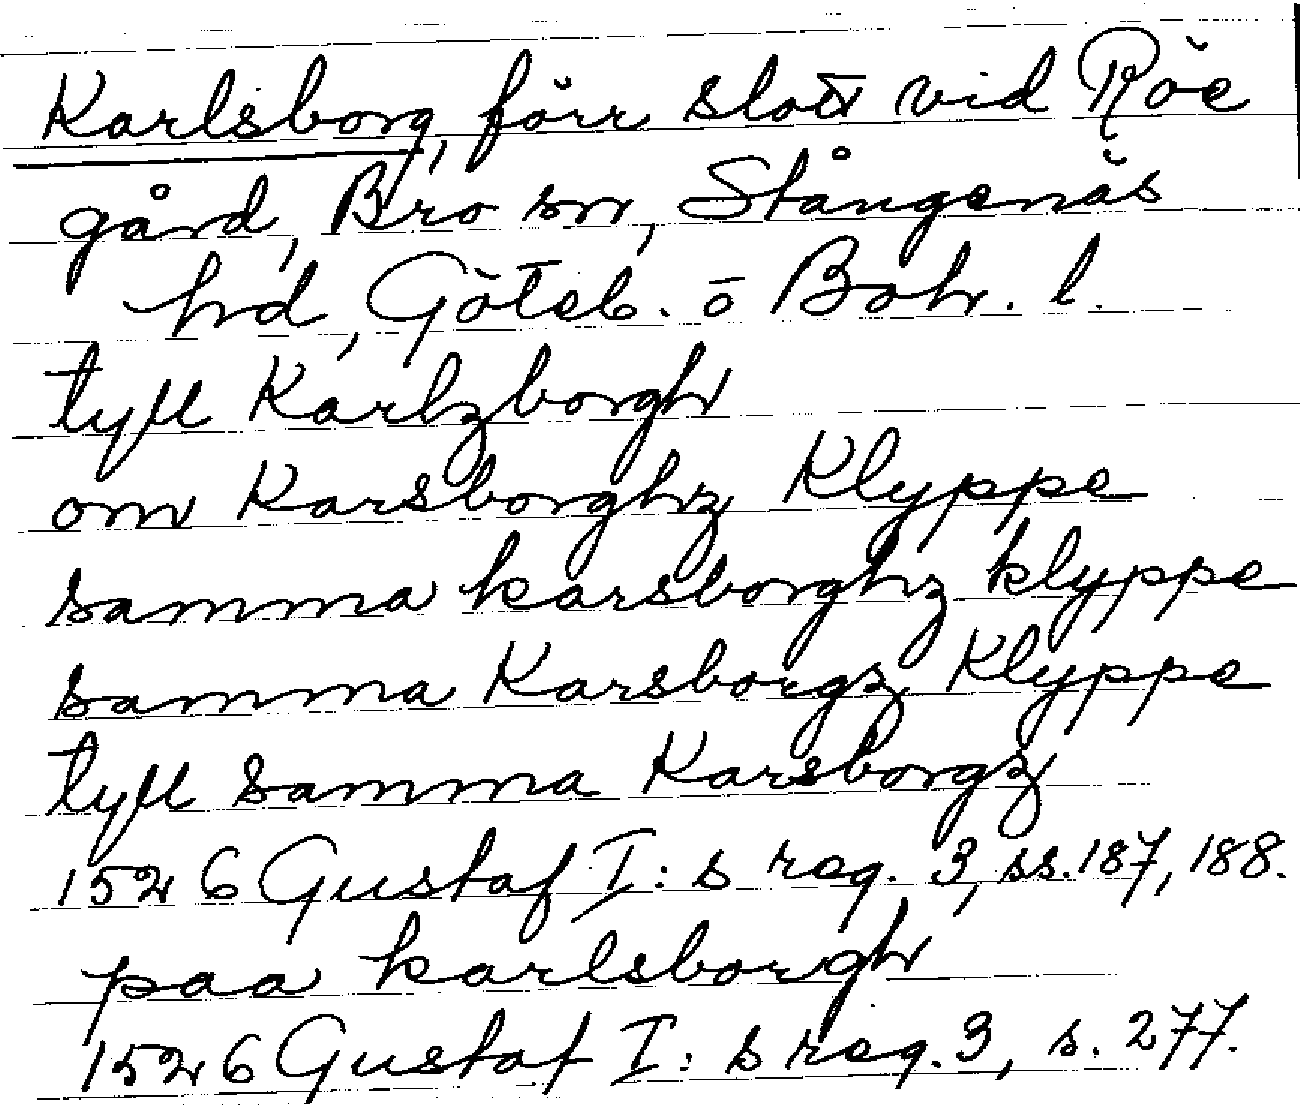 Karlsborg, förr slott vid Röe
gård, Bro sn, Stångenäs
hd, Göteb. o Boh. l.
tyll Karlzborgh
om Karsborghz Klyppe
samma karsborghz klyppe
samma Karsborgz Klyppe
tyll samma Karsborgz
1526 Gustaf I:s reg. 3, ss. 187, 188.
paa karlsborgh
1526 Gustaf I:s reg. 3, s. 277.